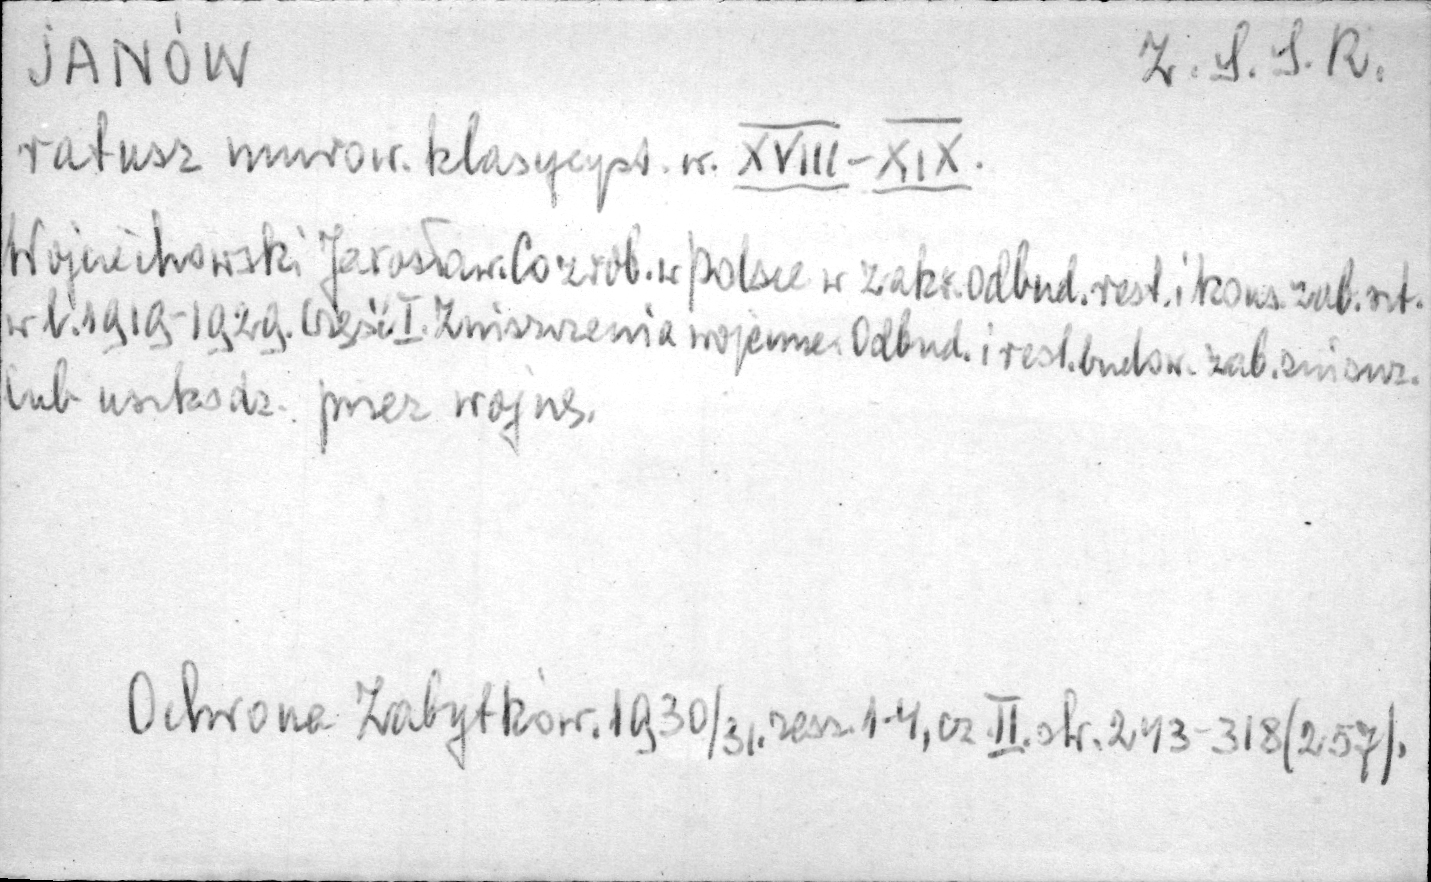 JANÓW Z.S.S.R.
ratusz murow. klasycyst. w. XVIII-XIX.
Wojciechowski Jarosław. Co zrob. w Polsce w zakr. odbud. rest. i kons. zab. szt.
w l. 1919-1929. Część I. Zniszczenia wojenne. Odbud. i rest. budow. zab. zniszcz.
lub uszkodz. przez wojnę.
Ochrona Zabytków. 1930/31. zesz. 1-4, cz. II. str. 243-318 (257).